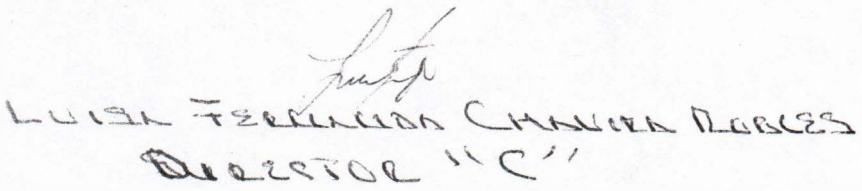 LUISA FERNANDA CHAVIRA ROBLES
DIRECTOR "C"